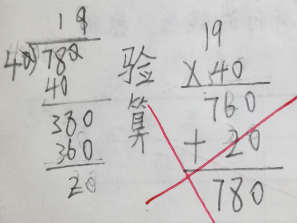 19
40 780
40
380
360
20
验算
19
×40
760
+ 20
780